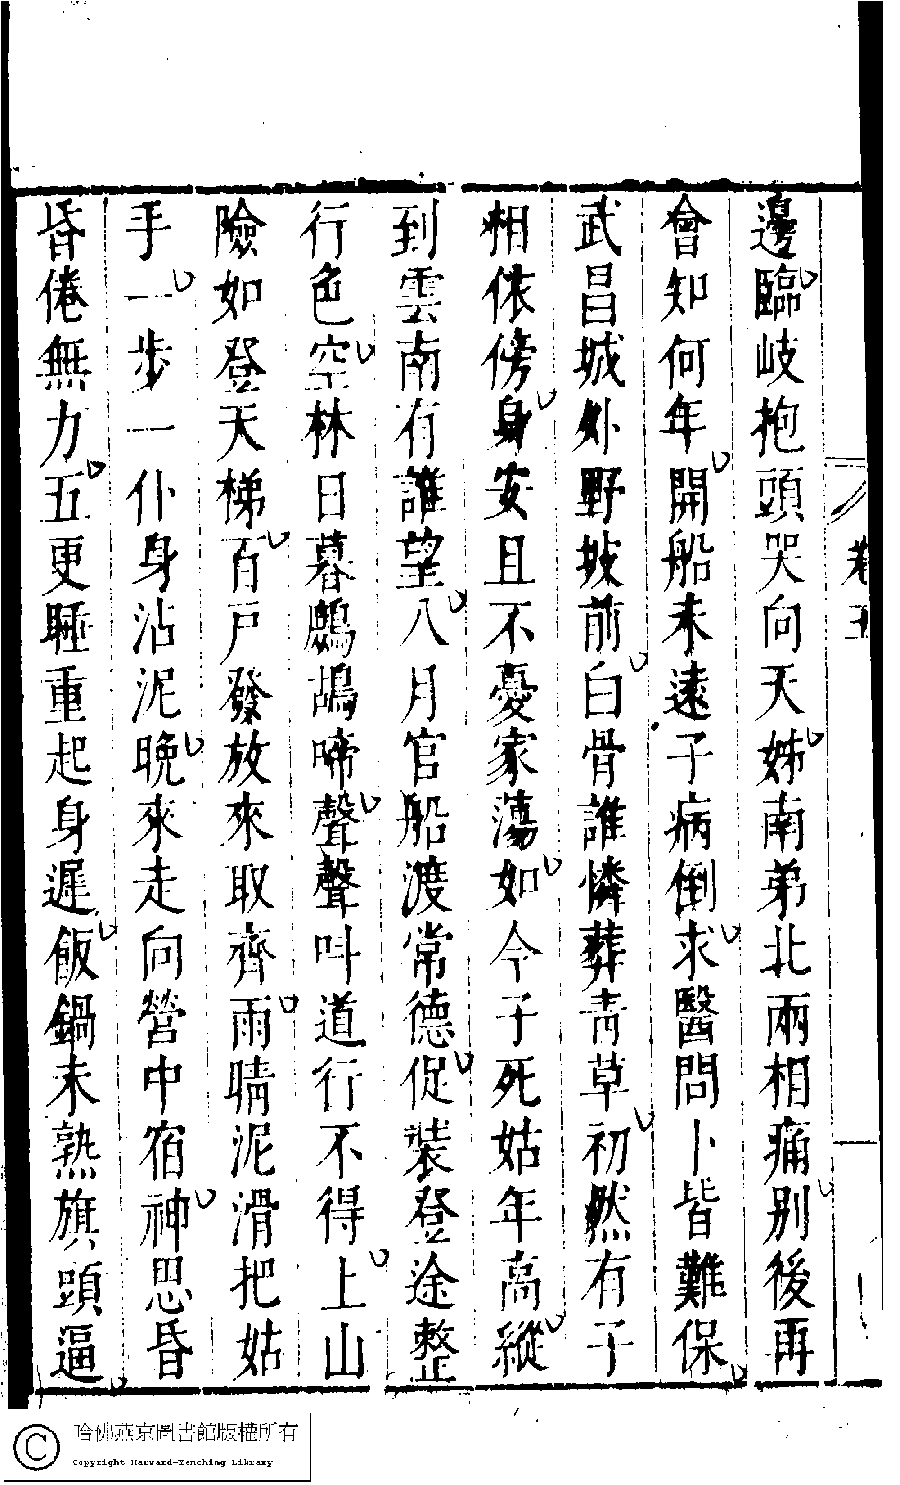 卷五
邊臨岐抱頭哭向天姊南弟北兩相痛別後再
會知何年開船未遠子病倒求醫問卜皆難保
武昌城外野坡前白骨誰憐葬青草初然有子
相依傍身安且不憂家蕩如今子死姑年高縱
到雲南有誰望八月官船渡常德促裝登途整
行色空林日暮鷓鴣啼聲聲叫道行不得上山
險如登天梯百戶發放來取齊雨晴泥滑把姑
手一步一仆身沾泥晚來走向營中宿神思昏
昏倦無力五更睡重起身遲飯鍋未熟旗頭逼
哈佛燕京圖書館版權所有
Copyright Harvard-Yenching Library